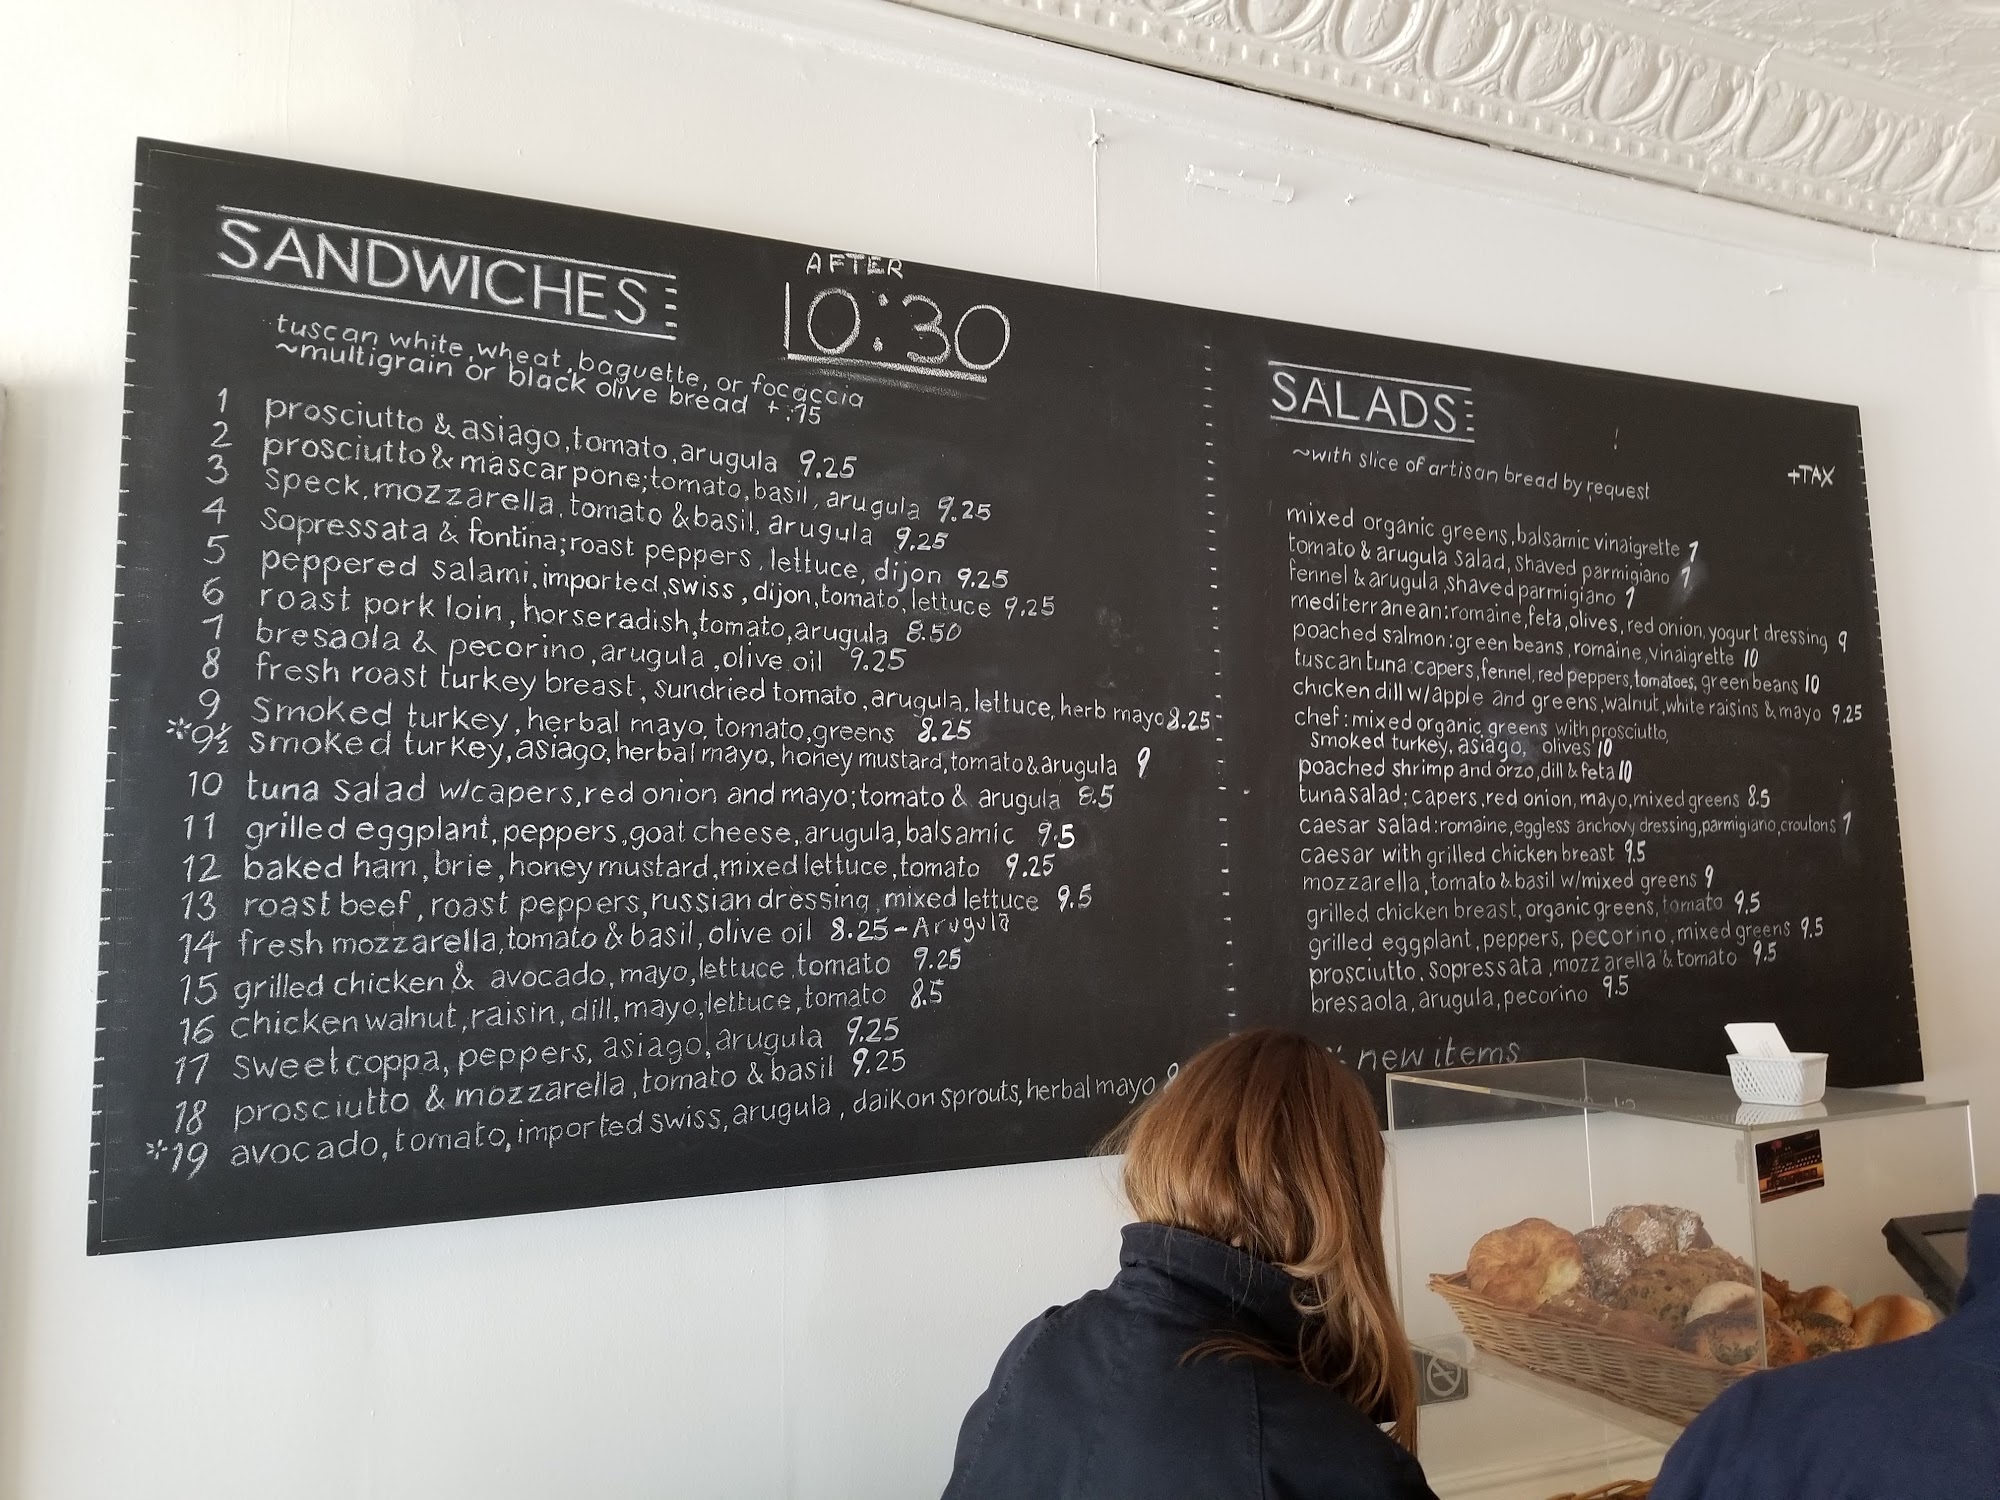 SANDWICHES
AFTER
10:30
tuscan white, wheat, baguette, or focaccia
~multigrain or black olive bread + .75
1 prosciutto & asiago, tomato, arugula 9.25
2 prosciutto & mascarpone; tomato, basil, arugula 9.25
3 speck, mozzarella, tomato & basil, arugula 9.25
4 Sopressata & fontina; roast peppers, lettuce, dijon 9.25
5 peppered salami, imported swiss, dijon, tomato, lettuce 9.25
6 roast pork loin, horseradish, tomato, arugula 8.50
7 bresaola & pecorino, arugula, olive oil 9.25
8 fresh roast turkey breast, sundried tomato, arugula, lettuce, herb mayo 8.25
9 Smoked turkey, herbal mayo, tomato, greens 8.25
*9½ Smoked turkey, asiago, herbal mayo, honey mustard, tomato & arugula 9
10 tuna salad w/capers, red onion and mayo; tomato & arugula 8.5
11 grilled eggplant, peppers, goat cheese, arugula, balsamic 9.5
12 baked ham, brie, honey mustard, mixed lettuce, tomato 9.25
13 roast beef, roast peppers, russian dressing, mixed lettuce 9.5
14 fresh mozzarella, tomato & basil, olive oil 8.25 - Arugula
15 grilled chicken & avocado, mayo, lettuce, tomato 9.25
16 chicken walnut, raisin, dill, mayo, lettuce, tomato 8.5
17 Sweet coppa, peppers, asiago, arugula 9.25
18 prosciutto & mozzarella, tomato & basil 9.25
*19 avocado, tomato, imported swiss, arugula, daikon sprouts, herbal mayo
SALADS
~with slice of artisan bread by request
+TAX
mixed organic greens, balsamic vinaigrette 7
tomato & arugula salad, shaved parmigiano 7
fennel & arugula, shaved parmigiano 7
mediterranean: romaine, feta, olives, red onion, yogurt dressing 9
poached salmon: green beans, romaine, vinaigrette 10
tuscan tuna: capers, fennel, red peppers, tomatoes, green beans 10
chicken dill w/apple and greens, walnut, white raisins & mayo 9.25
chef: mixed organic greens with prosciutto,
smoked turkey, asiago, olives 10
poached shrimp and orzo, dill & feta 10
tuna salad: capers, red onion, mayo, mixed greens 8.5
caesar salad: romaine, eggless anchovy dressing, parmigiano, croutons 7
caesar with grilled chicken breast 9.5
mozzarella, tomato & basil w/mixed greens 9
grilled chicken breast, organic greens, tomato 9.5
grilled eggplant, peppers, pecorino, mixed greens 9.5
prosciutto, sopressata, mozzarella & tomato 9.5
bresaola, arugula, pecorino 9.5
* new items